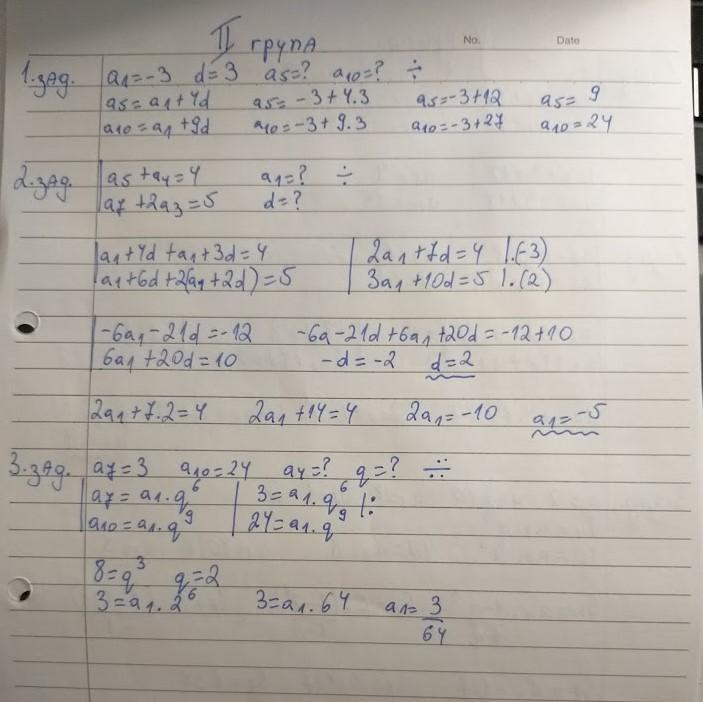 II група
No. Date
1.зад. a1=-3 d=3 a5=? a10=? ÷
a5=a1+4d a5=-3+4.3 a5=-3+12 a5=9
a10=a1+9d a10=-3+9.3 a10=-3+27 a10=24
2.зад. a5+a4=4 a1=? ÷
a7+2a3=5 d=?
a1+4d+a1+3d=4 2a1+7d=4 |.(-3)
a1+6d+2(a1+2d)=5 3a1+10d=5 |.(2)
-6a1-21d=-12 -6a-21d+6a1+20d=-12+10
6a1+20d=10 -d=-2 d=2
2a1+7.2=4 2a1+14=4 2a1=-10 a1=-5
3.зад. a7=3 a10=24 a4=? q=? ÷÷
a7=a1.q⁶ 3=a1.q⁶ |:
a10=a1.q⁹ 24=a1.q⁹
8=q³ q=2
3=a1.2⁶ 3=a1.64 a1=3/64